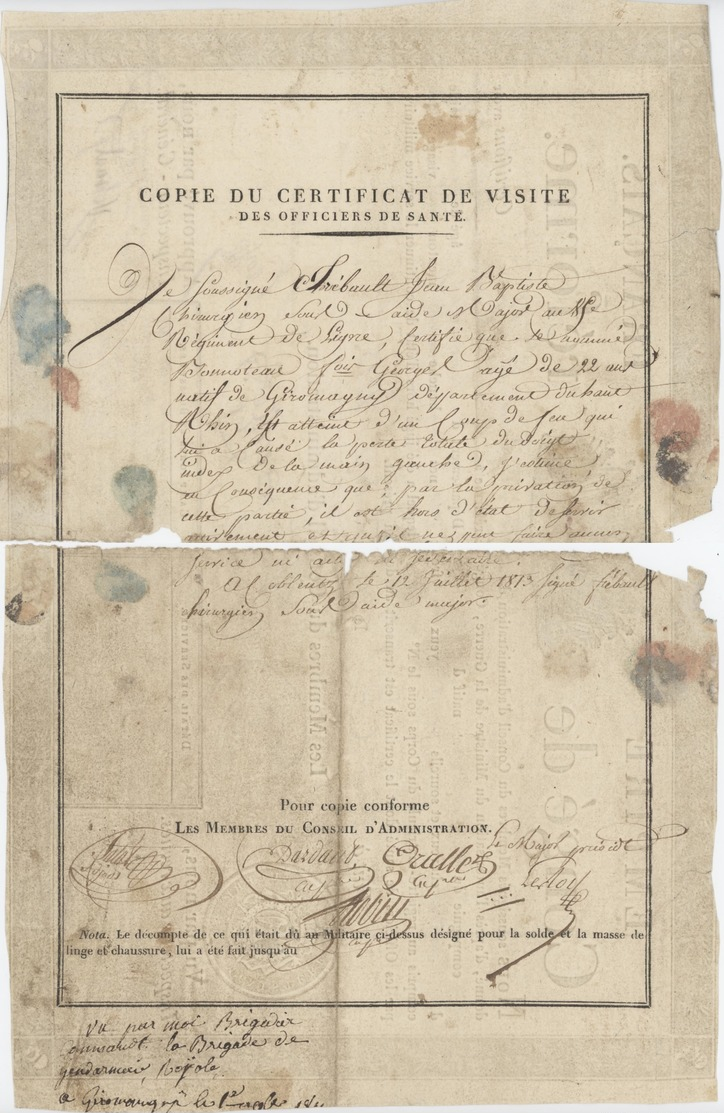 COPIE DU CERTIFICAT DE VISITE
DES OFFICIERS DE SANTÉ.
Je Soussigné Thiébault Jean Baptiste
Chirurgien Sous aide Major au
Régiment de Ligne, Certifie que le nommé
Georges agé de 22 ans
natif de Giromagny département du haut
Rhin, Est atteint d'un Coup de feu qui
lui a Causé la perte totale du doigt
index de la main gauche, J'estime
en Conséquence que, par la privation de
cette partie, il est hors d'état de servir
activement et qu'il ne peut faire aucun
service ni
A Coblentz le 12 Juillet 1813 signé Thiébault
Chirurgien Sous aide major.
Pour copie conforme
LES MEMBRES DU CONSEIL D'ADMINISTRATION.
Le Major président
Dardault
Leroy
Nota. Le décompte de ce qui était dû au Militaire ci-dessus désigné pour la solde et la masse de
linge et chaussure, lui a été fait jusqu'au
Vu par moi Brigadier
commandt la Brigade de
gendarmerie Royale
a Giromagny le